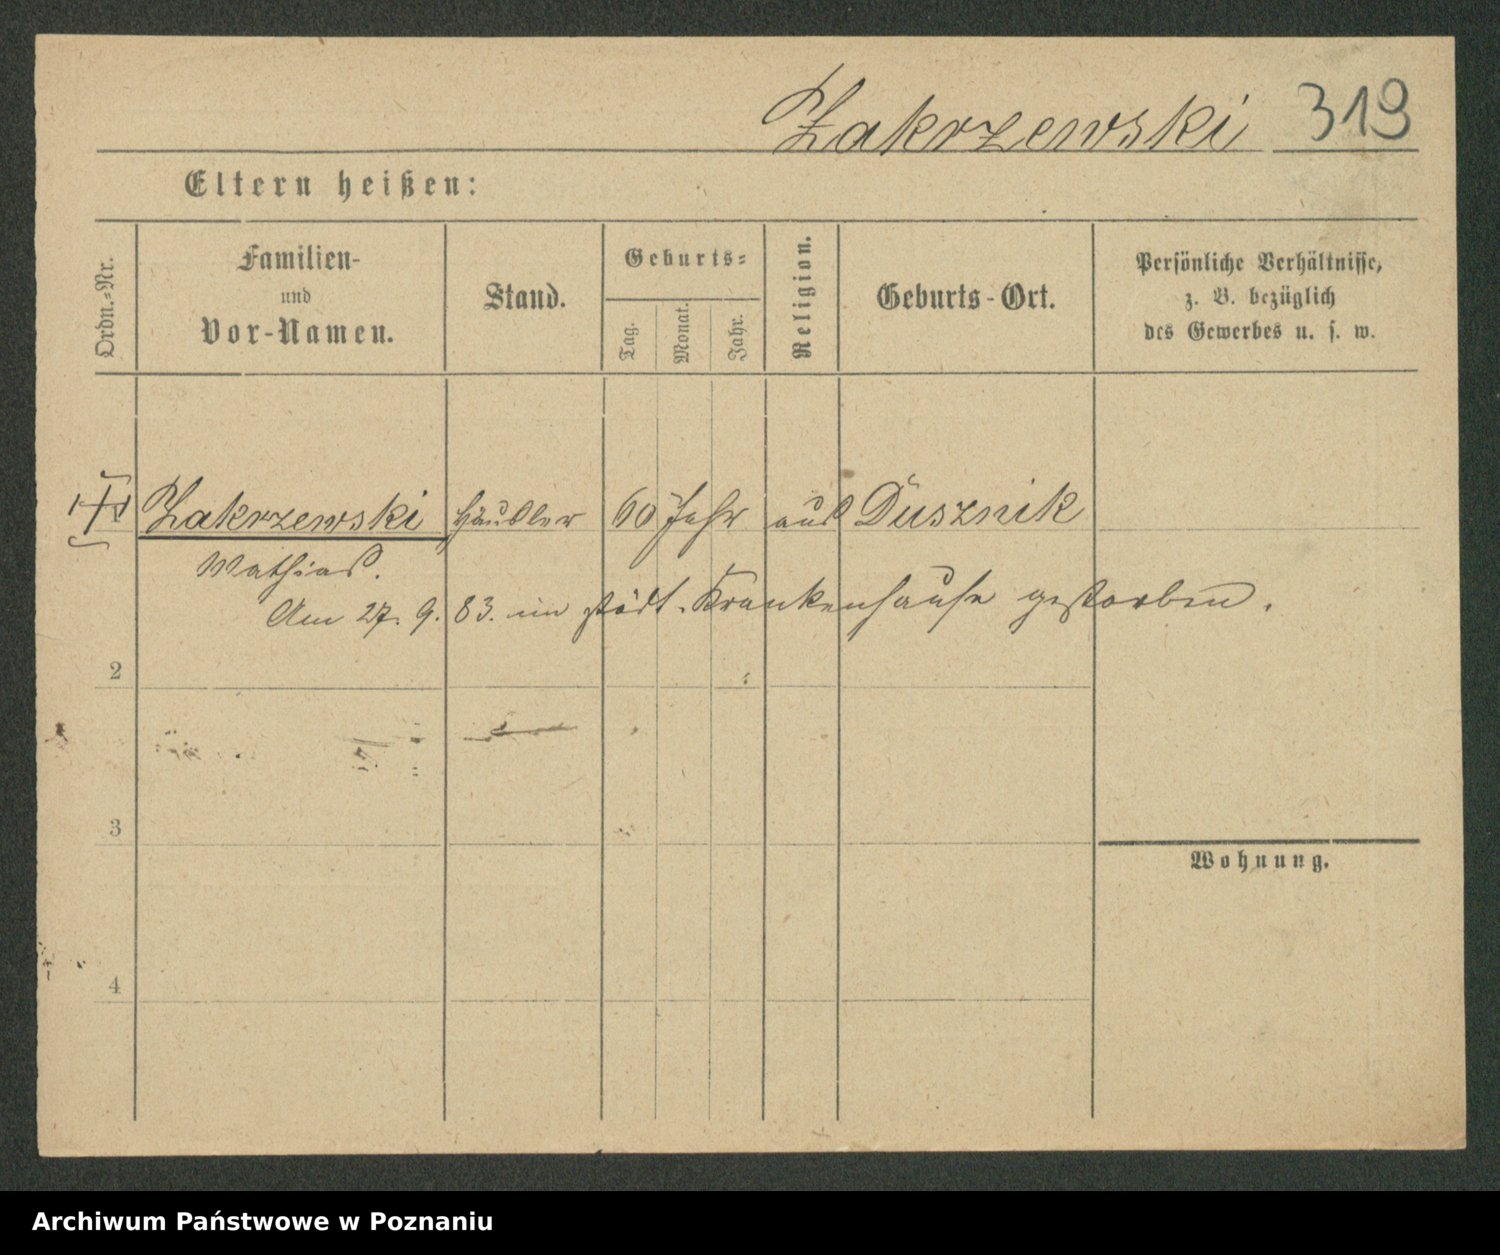 Zakrzewski 319
Eltern heißen:
Ordn.=Nr.
Familien-
und
Vor-Namen.
Stand.
Geburts=
Tag.
Monat.
Jahr.
Religion.
Geburts-Ort.
Persönliche Verhältnisse,
z. B. bezüglich
des Gewerbes u. s. w.
1 Zakrzewski Häusler 60 Jahr aus Dusznik
Mathias.
Am 27. 9. 83. im städt. Krankenhause gestorben.
2
3
Wohnung.
4
Archiwum Państwowe w Poznaniu